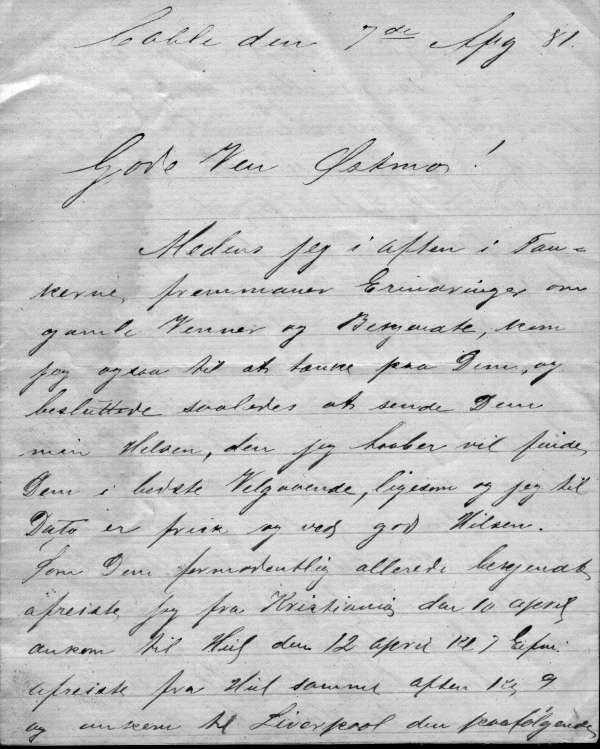 Cable den 7de Aug 81.
Gode Ven Østmo!
Medens jeg i aften i Tan-
kerne, fremmaner Erindringer om
gamle Venner og Bekjendte, kom
jeg ogsaa til at tænke paa Dem, og
besluttede saaledes at sende Dem
min Hilsen, den jeg haaber vil finde
Dem i bedste Velgaaende, ligesom og jeg til
Dato er frisk og ved god Hilsen.
Som Dem formodentlig allerede bekjendt
afreiste jeg fra Kristiania den 10 april
ankom til Hul den 12 april Kl 7 Efm
afreiste fra Hul samme aften Kl 9
og ankom til Liverpool den paafølgende